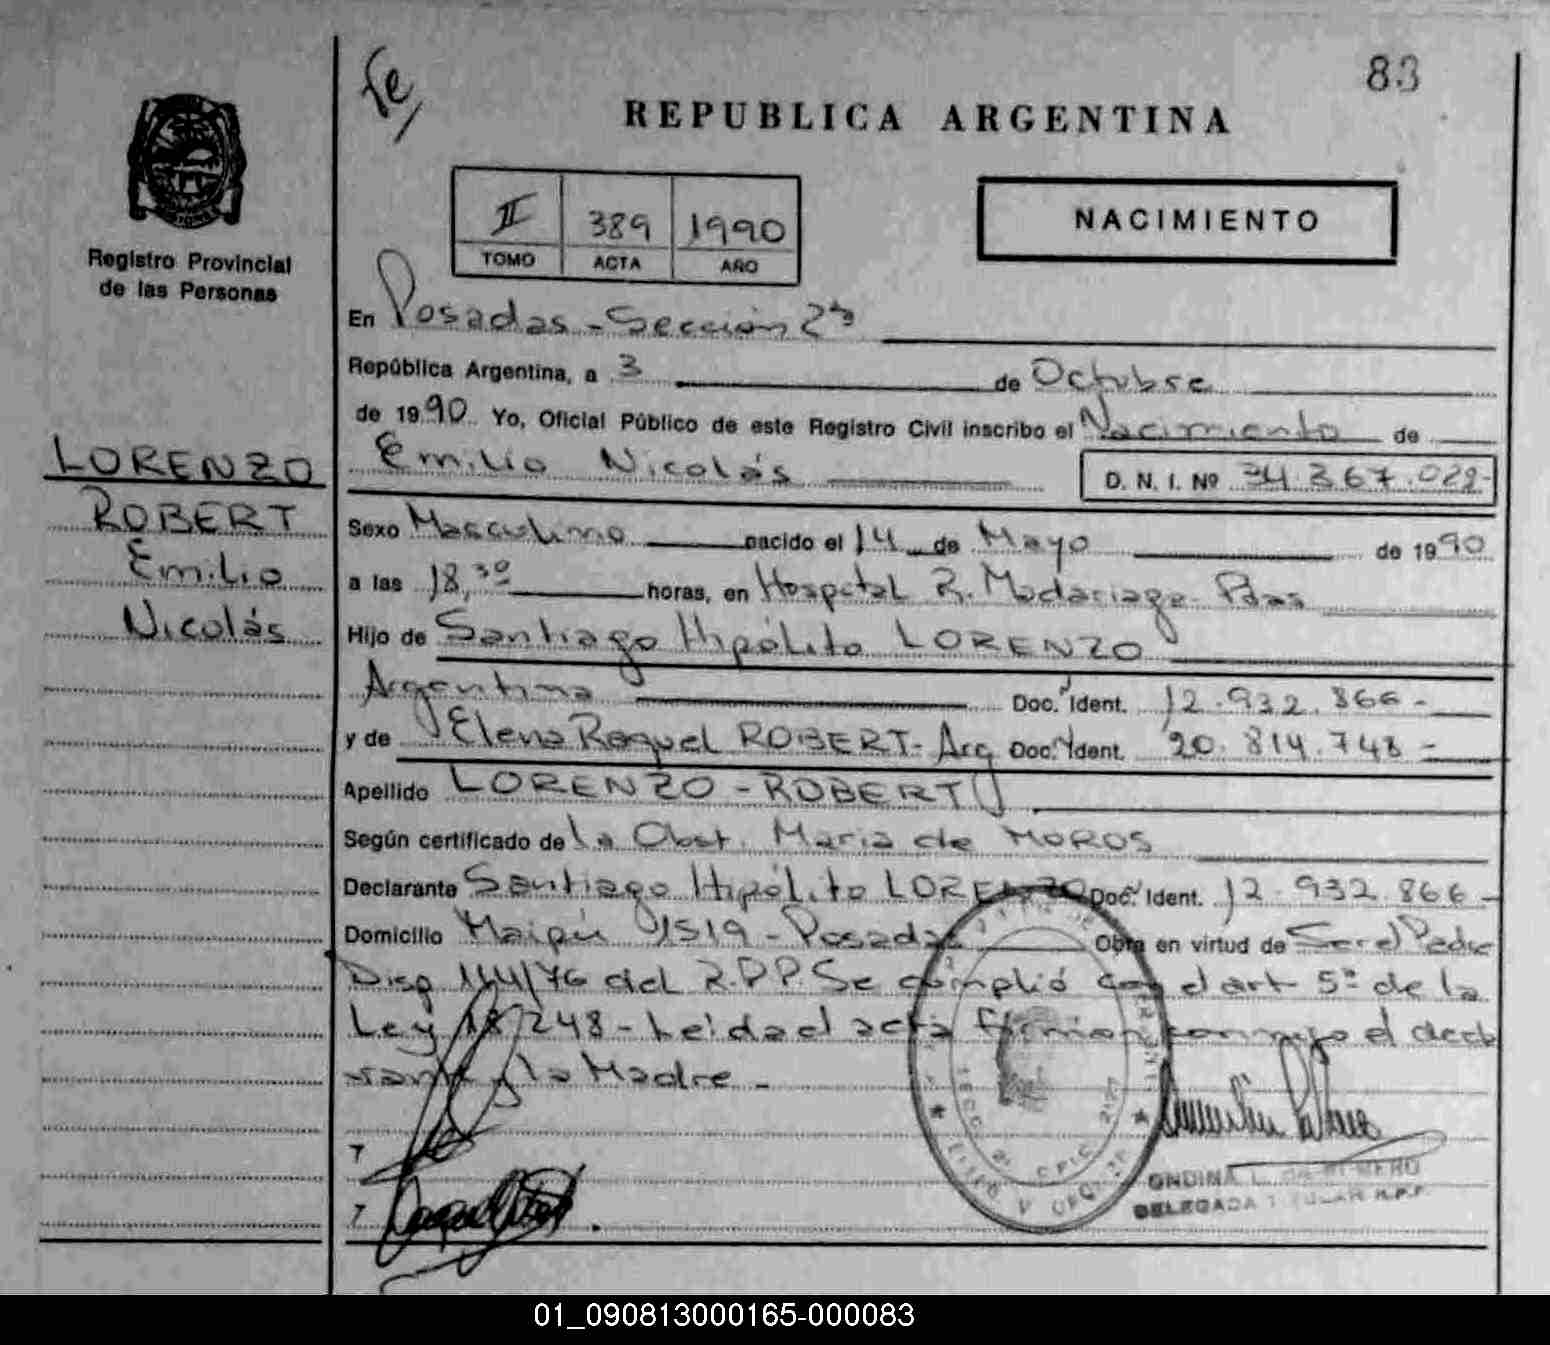 83
Fe,
REPUBLICA ARGENTINA
Registro Provincial
de las Personas
II 389 1990
TOMO ACTA AÑO
NACIMIENTO
En Posadas - Sección 2da
República Argentina, a 3 de Octubre
de 1990 Yo, Oficial Público de este Registro Civil inscribo el Nacimiento de
Emilio Nicolás D. N. I. Nº 34.367.028-
LORENZO
ROBERT
Emilio
Nicolás
Sexo Masculino nacido el 14 de Mayo de 1990
a las 18,30 horas, en Hospital R. Madariaga - Pdas
Hijo de Santiago Hipólito LORENZO
Argentina Doc. Ident. 12.932.866-
y de Elena Raquel ROBERT - Arg Doc. Ident. 20.814.748-
Apellido LORENZO - ROBERT
Según certificado de la Obst. María de MOROS
Declarante Santiago Hipólito LORENZO Doc. Ident. 12.932.866-
Domicilio Maipú 1519 - Posadas Obra en virtud de Ser el Padre
Disp 144/76 del R.P.P. Se cumplió con el art 5º de la
Ley 18.248 - Leída el acta firman conmigo el decla
rante y la Madre -
ONDINA L. DE
DELEGADA TITULAR R.P.P.
01_090813000165-000083